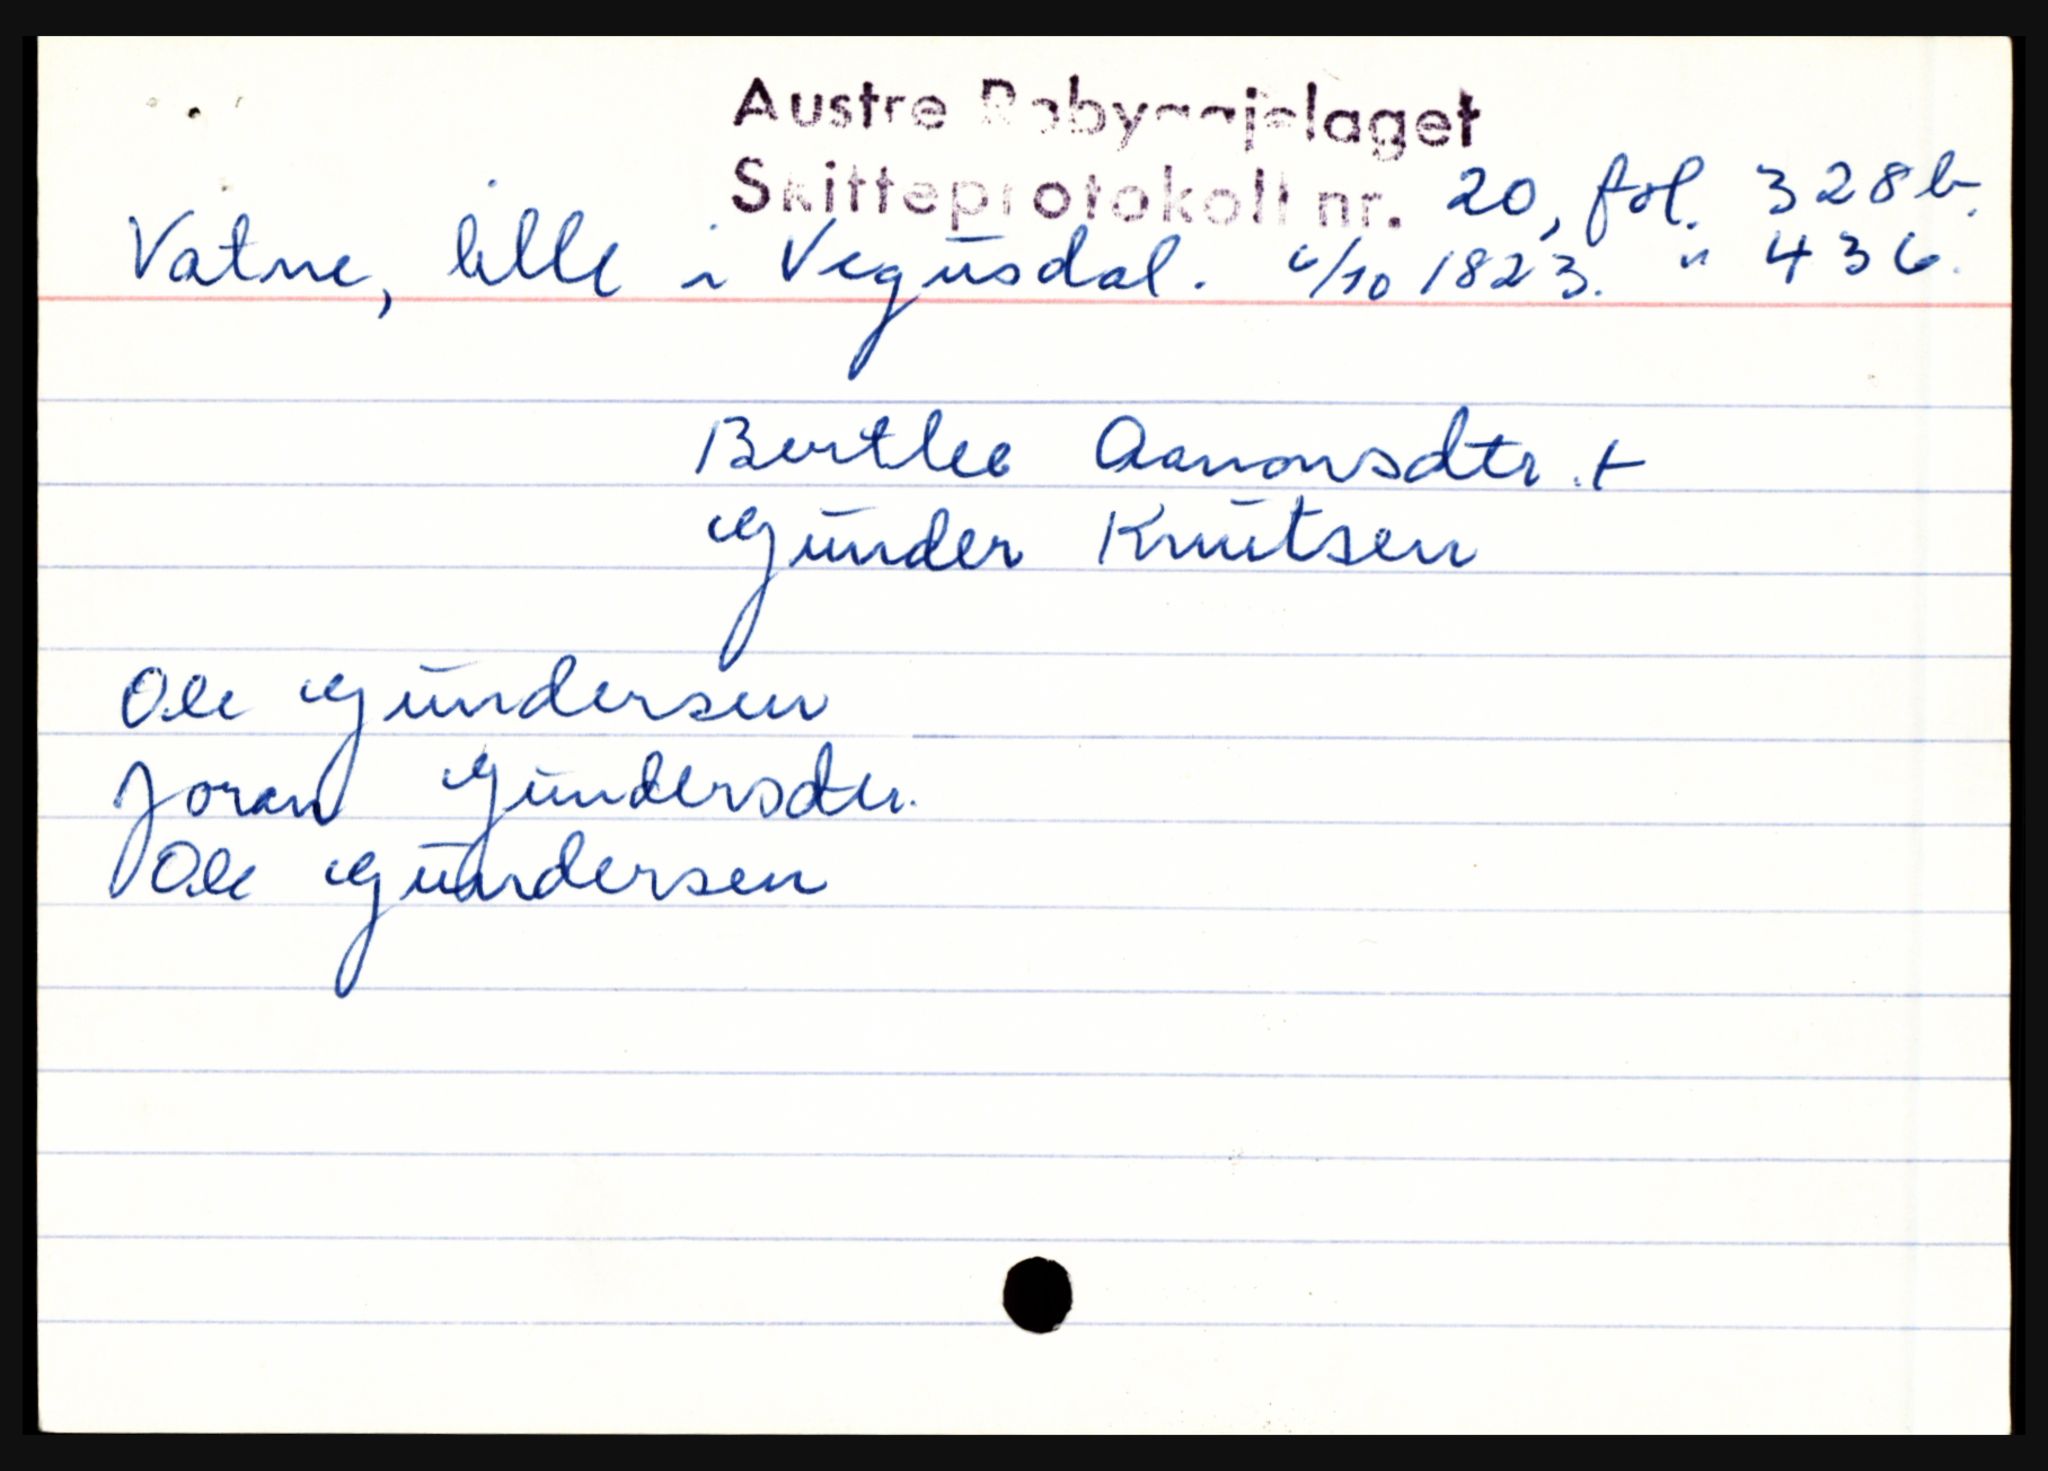 Austre Robyggjelaget
Skifteprotokoll nr. 20, fol. 328b.
Vatne, lille i Vegusdal. 6/10 1823. " 436.
Berthe Aanonsdtr. +
Gunder Knutsen
Ole Gundersen
Joran Gundersdtr.
Ole Gundersen